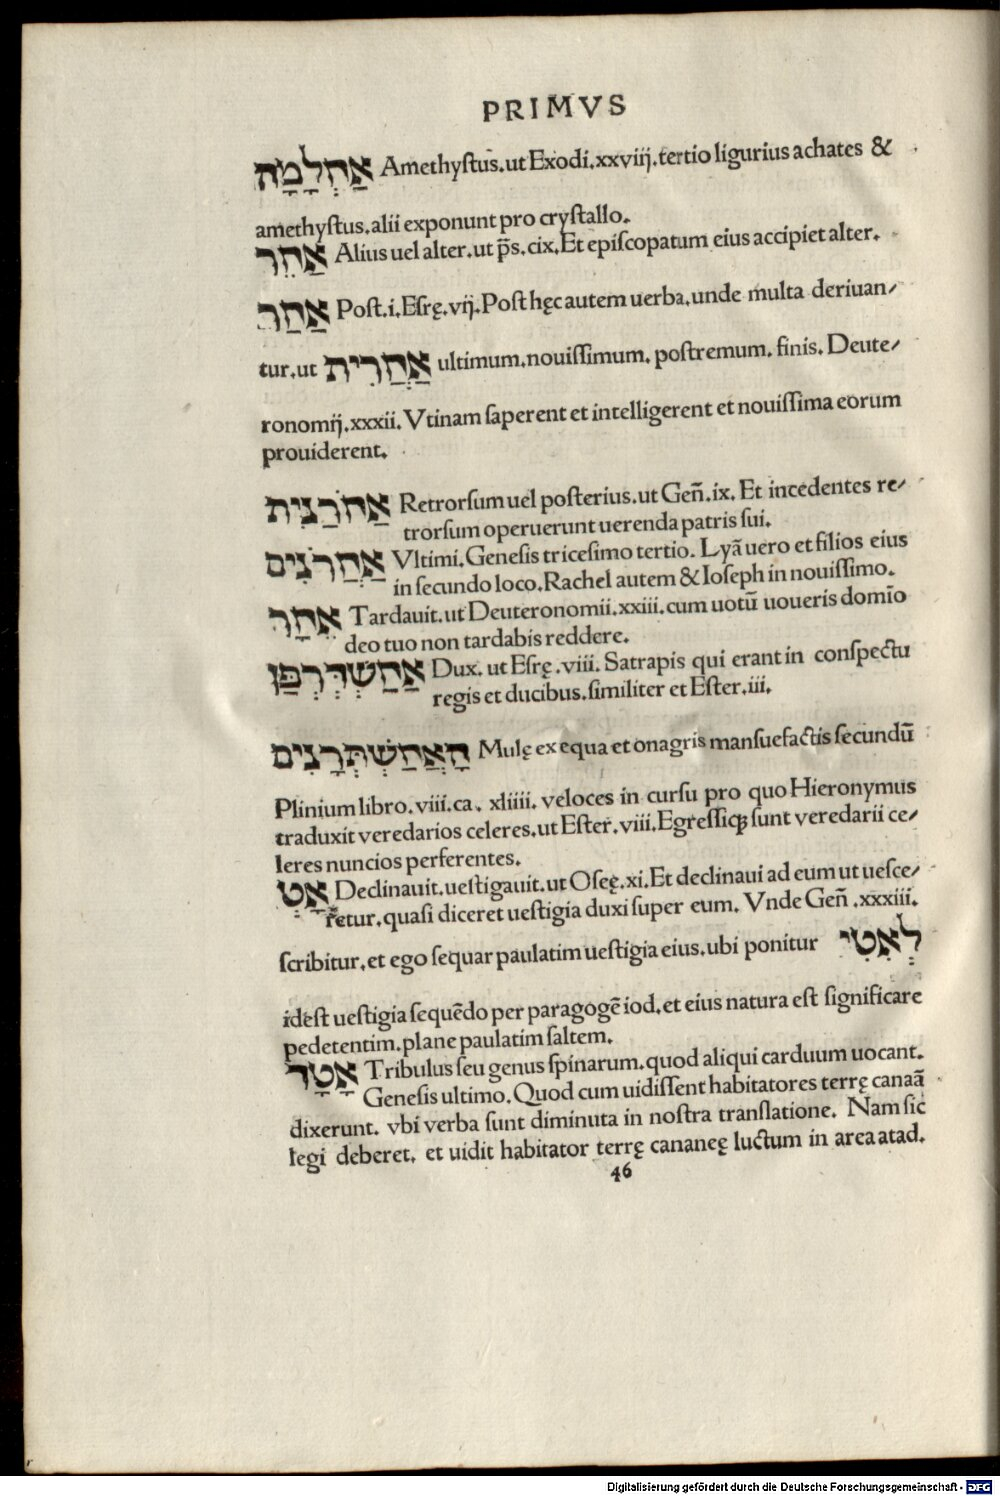 PRIMVS
אַחְלָמָה Amethyſtus.ut Exodi.xxviij.tertio ligurius achates &
amethyſtus.alii exponunt pro cryſtallo.
אַחֵר Alius uel alter.ut p̄s.cix.Et epiſcopatum eius accipiet alter.
אַחַר Poſt.i.Eſrę.vij.Poſt hęc autem uerba.unde multa deriuan/
tur.ut אַחֲרִית ultimum.nouiſſimum. poſtremum. finis. Deute/
ronomij.xxxii. Vtinam ſaperent et intelligerent et nouiſſima eorum
prouiderent.
אַחֹרַנִית Retrorſum uel poſterius.ut Gen̄.ix. Et incedentes re/
trorſum operuerunt uerenda patris ſui.
אַחֲרֹנִים Vltimi.Geneſis triceſimo tertio. Lyā uero et filios eius
in ſecundo loco.Rachel autem & Ioſeph in nouiſſimo.
אֵחָר Tardauit.ut Deuteronomii.xxiii.cum uotū uoueris domīo
deo tuo non tardabis reddere.
אַחַשְׁדְּרְפַּן Dux. ut Eſrę.viii. Satrapis qui erant in conſpectu
regis et ducibus.ſimiliter et Eſter.iii.
הָאֲחַשְׁתְּרָנִים Mulę ex equa et onagris manſuefactis ſecundū
Plinium libro.viii.ca. xliiii. veloces in curſu pro quo Hieronymus
traduxit veredarios celeres.ut Eſter.viii.Egreſſiqꝫ ſunt veredarii ce/
leres nuncios perferentes.
אָט Declinauit.ueſtigauit.ut Oſeę.xi.Et declinaui ad eum ut ueſce/
retur.quaſi diceret ueſtigia duxi ſuper eum. Vnde Gen̄.xxxiii.
ſcribitur.et ego ſequar paulatim ueſtigia eius.ubi ponitur לְאִטִי
ideſt ueſtigia ſequēdo per paragogē iod.et eius natura eſt ſignificare
pedetentim.plane paulatim ſaltem.
אָטָד Tribulus ſeu genus ſpinarum.quod aliqui carduum uocant.
Geneſis ultimo.Quod cum uidiſſent habitatores terrę canaā
dixerunt. vbi verba ſunt diminuta in noſtra tranſlatione. Nam ſic
legi deberet. et uidit habitator terrę cananeę luctum in area atad.
46
Digitalisierung gefördert durch die Deutsche Forschungsgemeinschaft - DFG